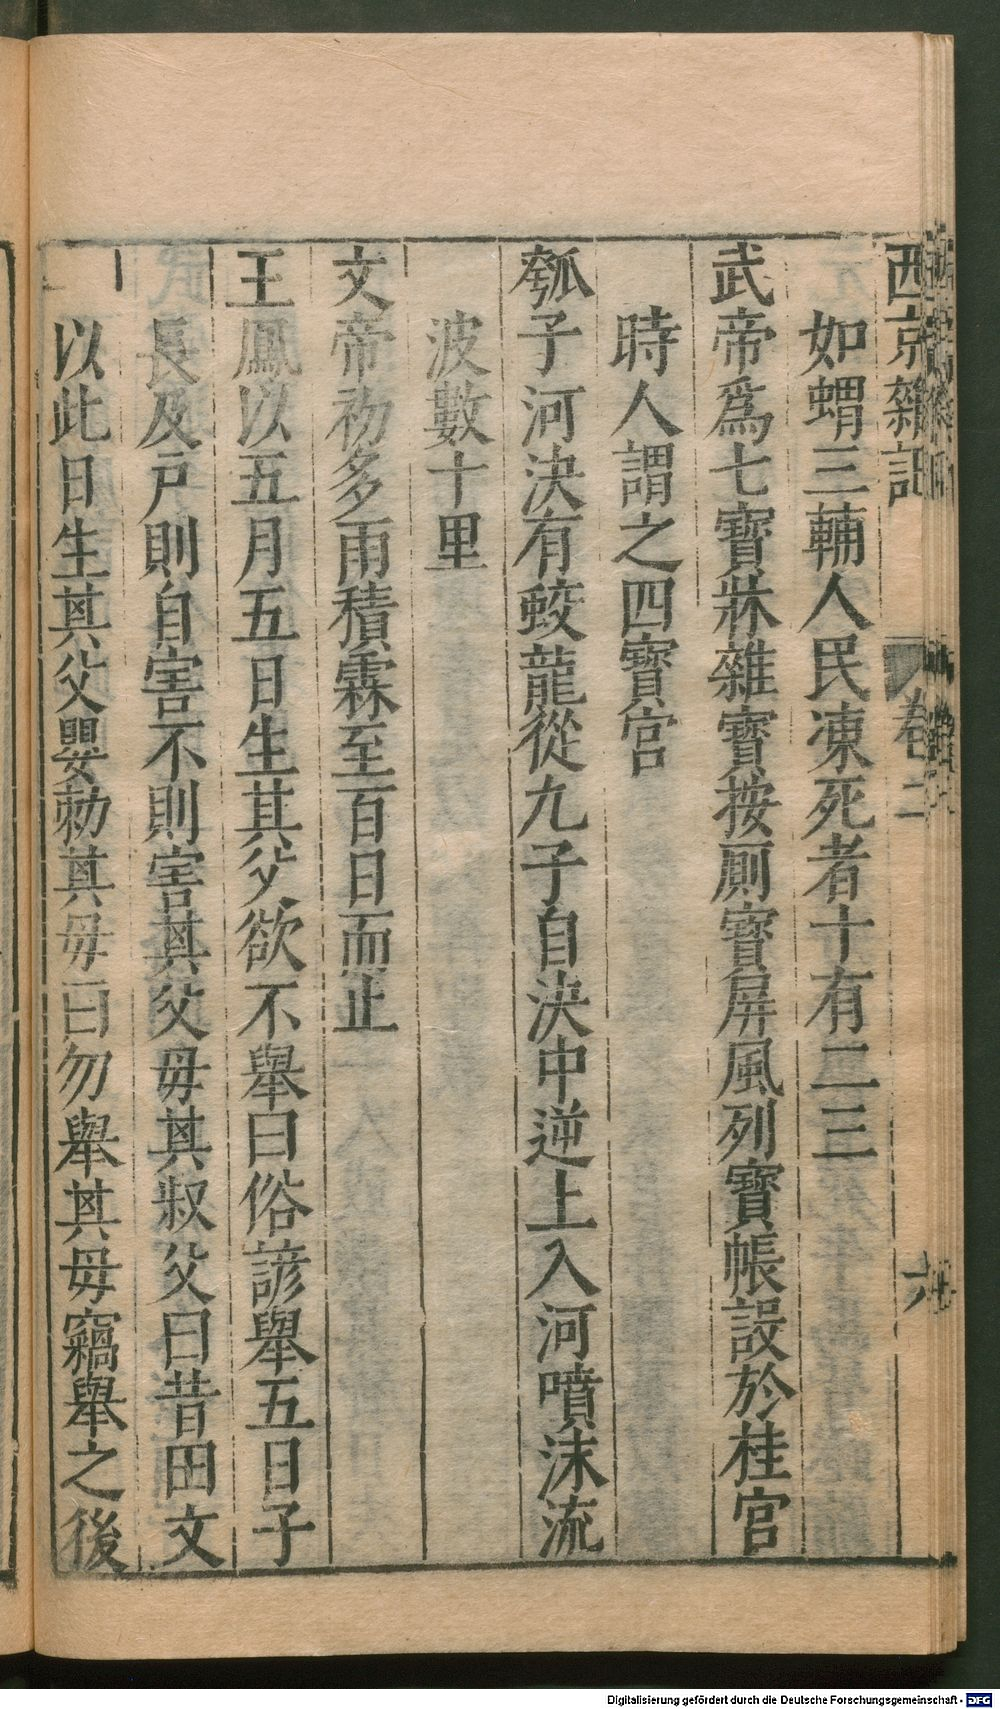 西京雜記 卷二 六
如蝟三輔人民凍死者十有二三
武帝爲七寶牀雜寶按厠寶屏風列寶帳設於桂宮
時人謂之四寶宮
瓠子河決有蛟龍從九子自決中逆上入河噴沫流
波數十里
文帝初多雨積霖至百日而止
王鳳以五月五日生其父欲不舉曰俗諺舉五日子
長及戶則自害不則害其父母其叔父曰昔田文
以此日生其父嬰勑其母曰勿舉其母竊舉之後
Digitalisierung gefördert durch die Deutsche Forschungsgemeinschaft - DFG